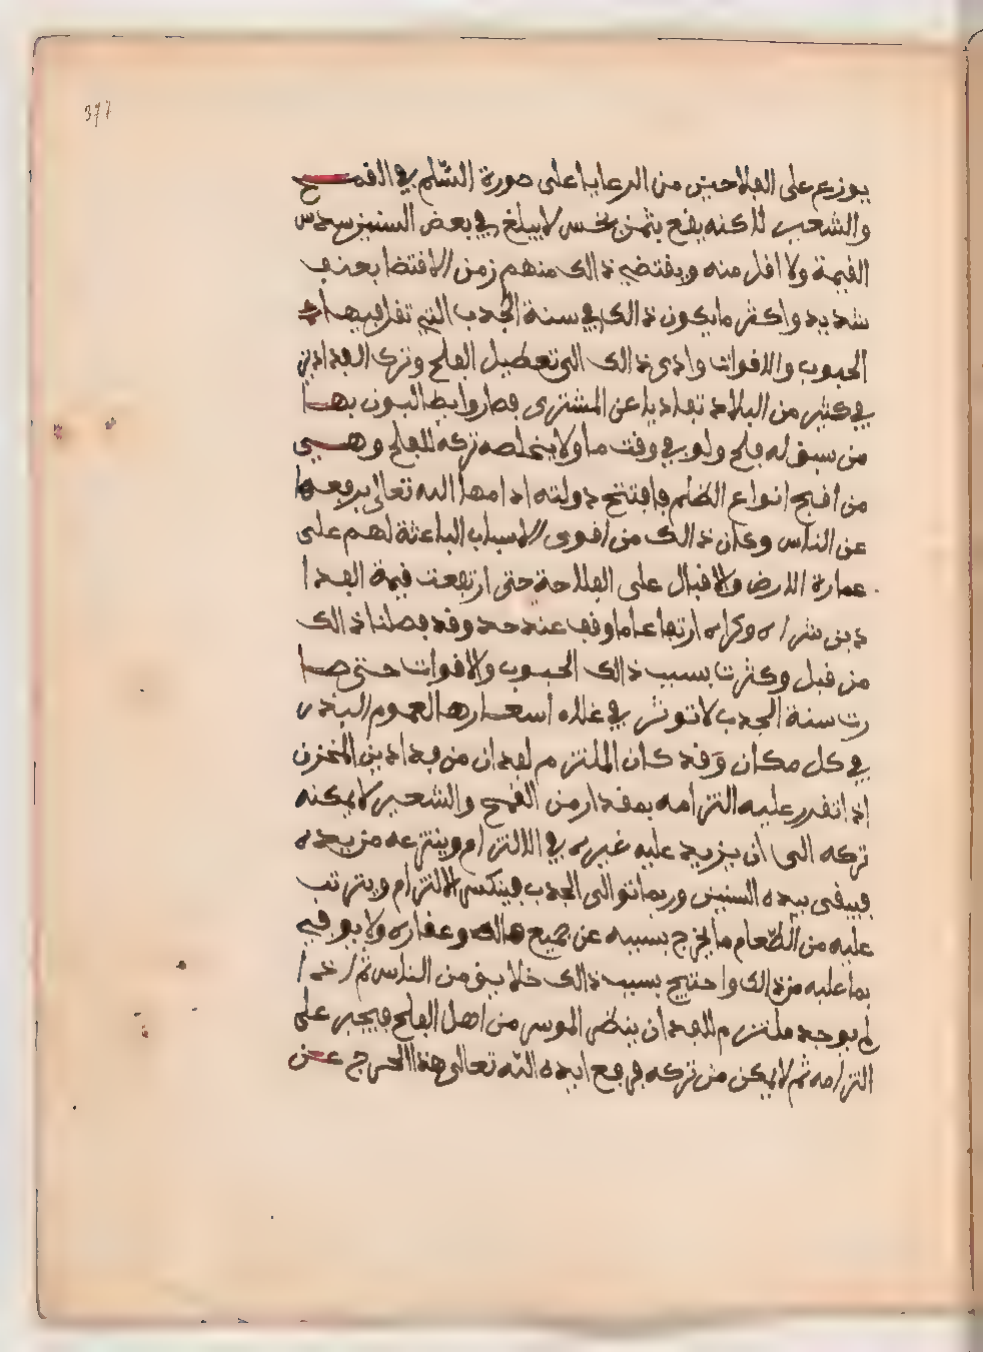 377
يوزع على الفلاحين من الرعايا على صورة السّلم في القمح
والشعير لاكنه يقع بثمن بخس لا يبلغ في بعض السنين سدس
القيمة ولا اقل منه ويقتضي ذالك منهم زمن الاقتضا بعنف
شديد واكثر ما يكون ذالك في سنة الجدب التي تقل فيها
الحبوب والاقوات وادى ذالك الى تعطيل الفلح وترك الفدادين
في كثير من البلاد تفاديا عن المشترى فصاروا يطالبون بها
من سبق له فلح ولو في وقت ما ولا يخلصه تركه للفلح وهي
من اقبح انواع الظلم فافتتح دولته ادامها الله تعالى برفعها
عن الناس وكان ذالك من اقوى الاسباب الباعثة لهم على
عمارة الارض والاقبال على الفلاحة حتى ارتفعت قيمة الفدا
دين شراء وكراء ارتفاعا ما وقف عند حد وقد فصلنا ذالك
من قبل وكثرت بسبب ذالك الحبوب والاقوات حتى صا
رت سنة الجدب لا تؤثر في غلاء اسعارها لعموم البذر
في كل مكان وَقد كان الملتزم لفدان من فدادين المخزن
اذا تقرر عليه التزامه بمقدار من القمح والشعير لا يمكنه
تركه الى ان يزيد عليه غيره في الالتزام وينتزعه من يده
فيبقى بيده السنين وربما توالى الجدب فينكسر الالتزام ويترتب
عليه من الطّعام ما يخرج بسببه عن جميع ماله وعقاره ولا يوفيه
بما عليه من ذالك واحتيج بسبب ذالك خلايق من الناس ثم اذا
لم يوجد ملتزم للفدان ينظر الموسر من اهل الفلح فيجبر على
التزامه ثم لا يمكن من تركه فرفع ايده الله تعالى هذا الحرج عن